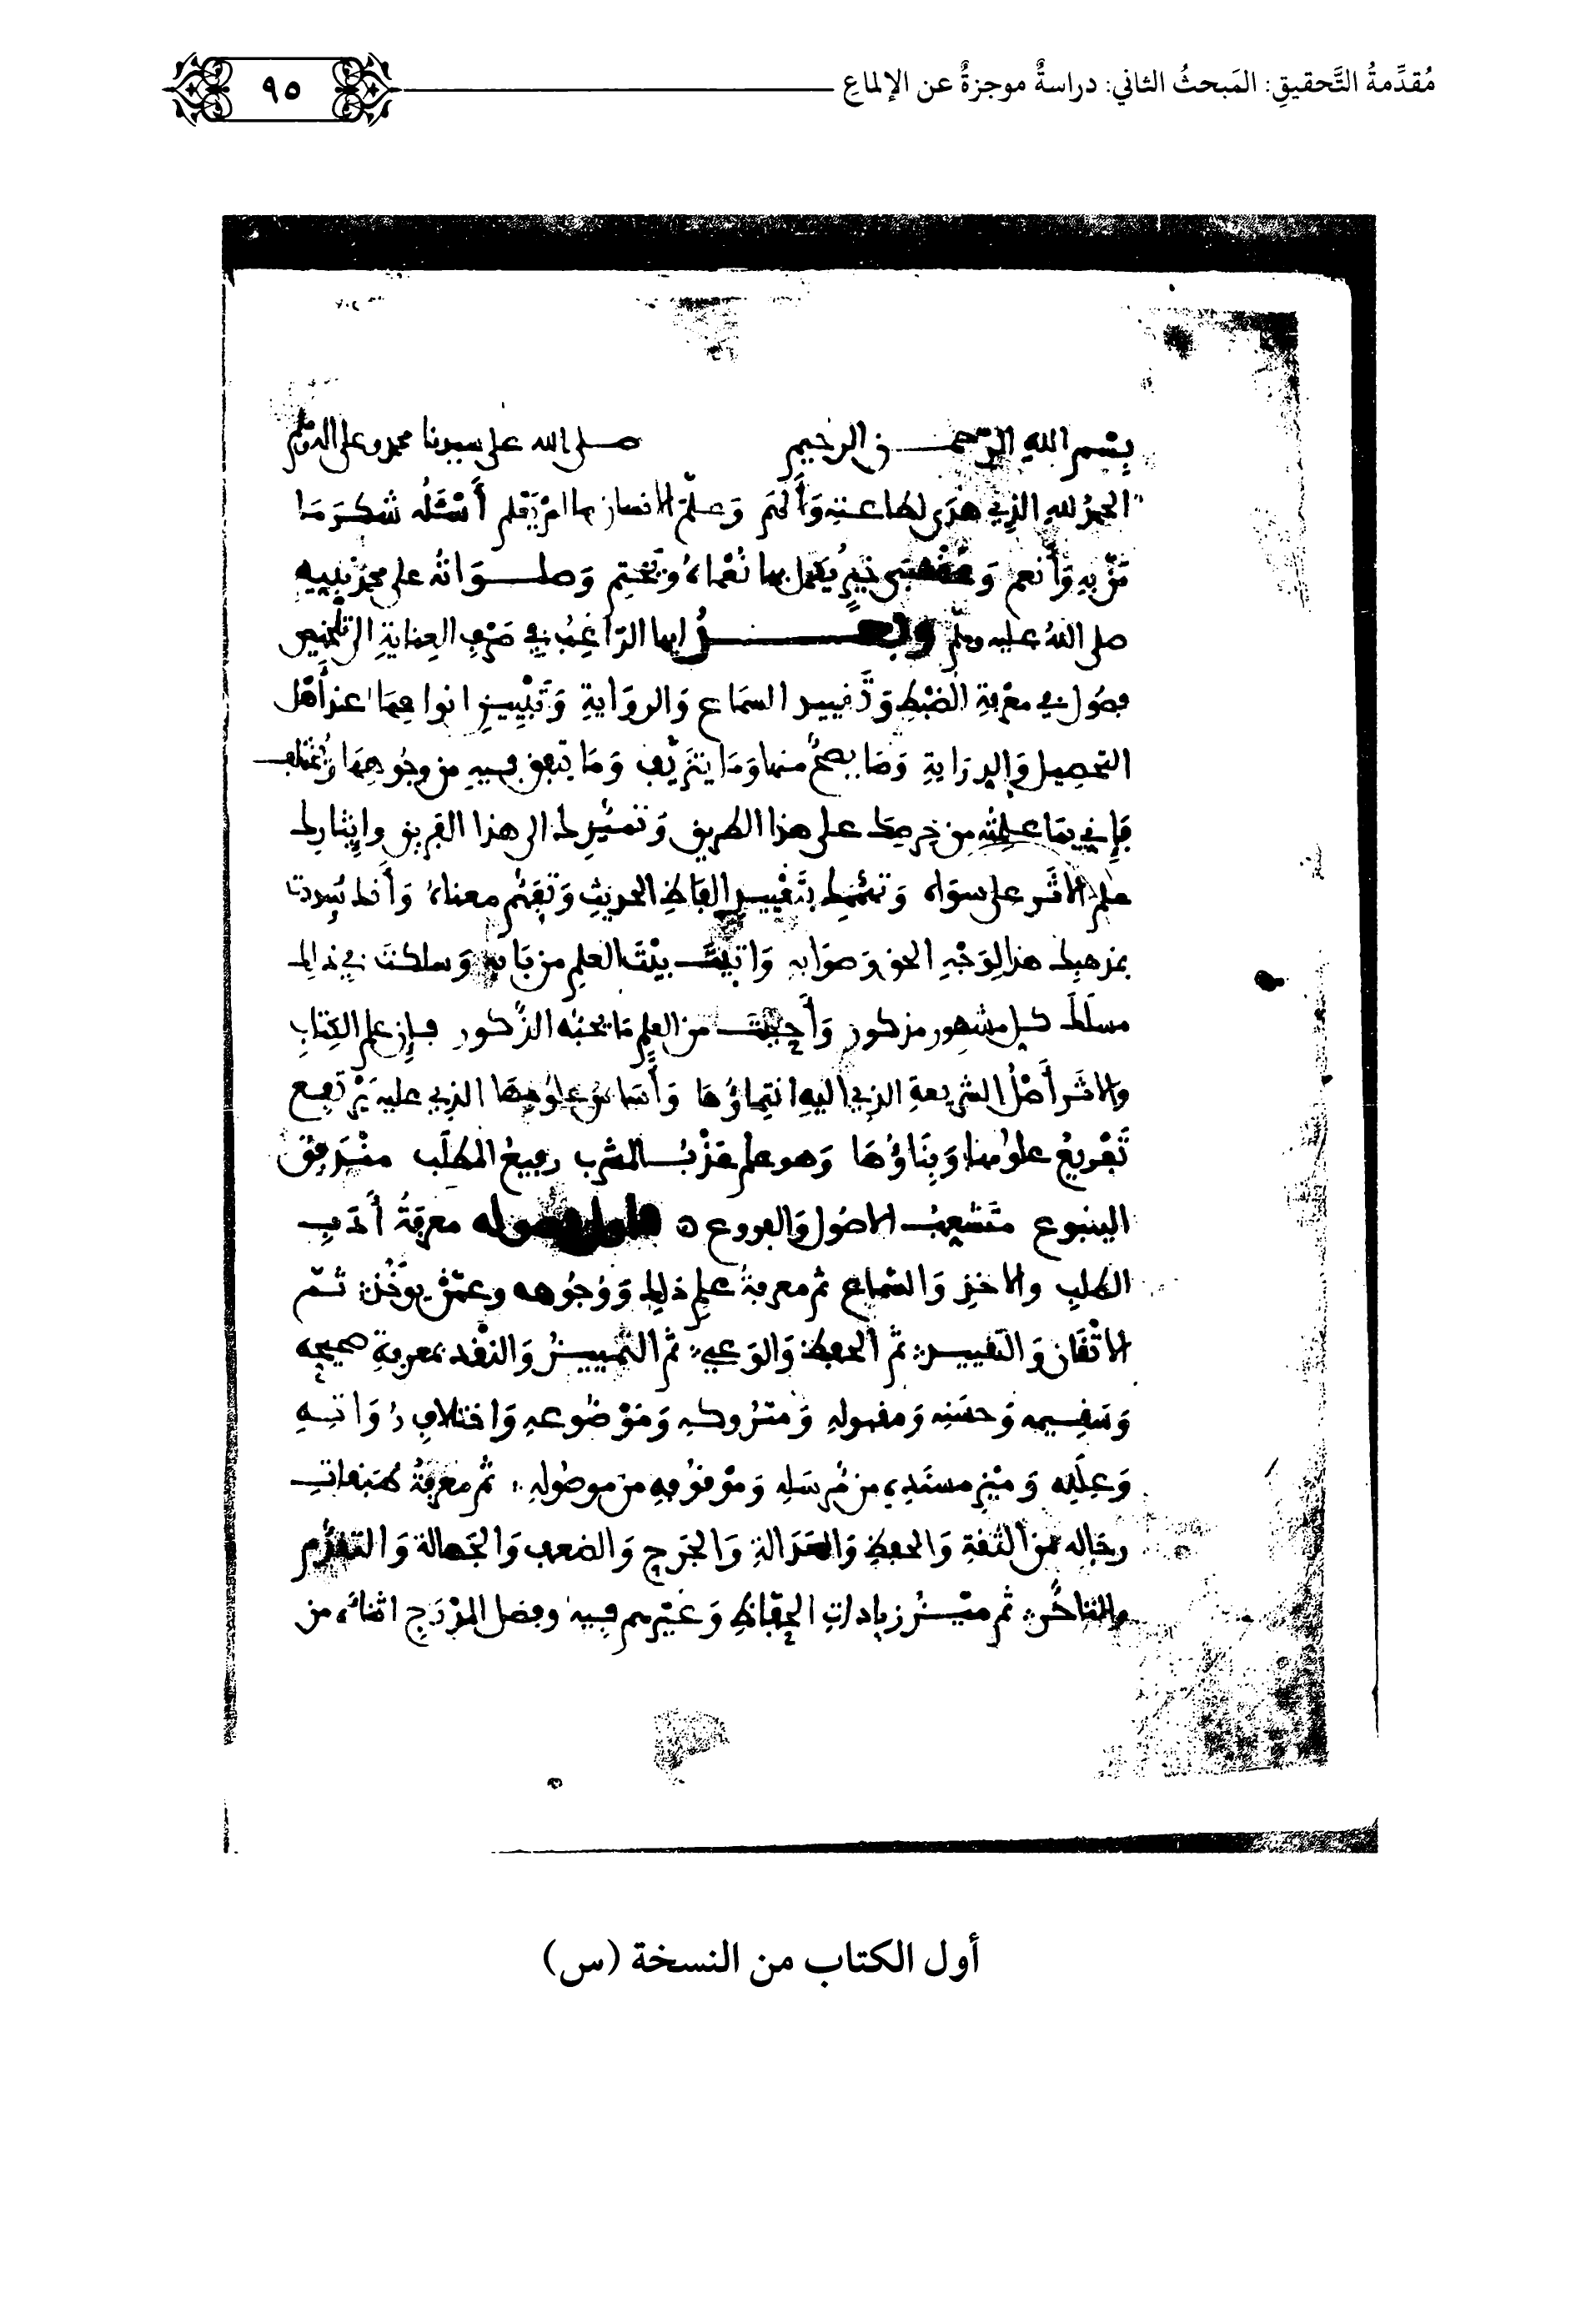 مُقدِّمةُ التَّحقيقِ: المَبحثُ الثاني: دراسةٌ موجزةٌ عن الإلماعِ
٩٥
بِسْمِ اللهِ الرَّحمـن الرحيم صلى الله على سيدنا محمد وعلى اله
الحمدُ للهِ الذي هَدَى لطاعته وَأَلْهَمَ وَعلّمَ الانسان ما لمْ يَعْلم أَسْئَلُه شكرَ مَا
مَنّ بِهِ وَأنعم يُكمل بها نُعْماه ويختم وصلـواته على محمد نبيه
صلى اللهُ عليه وسلّم وبعـدُ ايها الرّاغِبُ في صَرْفِ العِنايةِ الى تلخيص
فصُول في معْرفة الضبْطِ وَتَقييد السمَاع وَالروَايةِ وَتَبْيِينِ انواعِهَا عند أَهْل
التحصيل وَالدرَايةِ وَمَا يصحُّ منها وَمَا يتزَيّف وَمَا يتفق فيهِ من وجُوههَا وَيَختلف
فإني بمَا علمتُه من حِرصِك على هذا الطريق وَتميّزِك الى هذا الفريق وإيثارِك
علم الاثَر على سوَاه وَتهمُّمِك بتَقْييدِ الفاظِ الحديثِ وَتفَهُّم معناهُ وَأنك
بمذهبِك هذا لِوَجْهِ الحق وصوَابه وَاتيتَ بيْتَ العلم من بَابه وَسلكتَ في ذالك
مسلَكَ كل مشهور مذكور وَأَحببتَ من العلم مَا يحبُّه الذُّكور فإن علم الكِتابِ
والاثَر أَصْلُ الشريعةِ الذي اليهِ انتِماؤُهَا وَأَسَاسُ علُومِهَا الذِي عليه يَرْتفِع
تَفْريعُ علومها وَبِنَاؤُهَا وَهو علم عَذْبُ المشرب رفيعُ المطلَب متَدَفِّقُ
الينبوع متَشَعبُ الاصُول وَالفروع فأول فصوله معرِفَةُ أدبِ
الطلبِ والاخذِ وَالسّماع ثم معرفةُ علمِ ذلك وَوُجُوهه وعمّنْ يؤخَذ ثم
الاتْقَان وَالتقييد ثم الحفظ وَالوَعي ثم التمييزُ وَالنقْد بمعرفةِ صحيحِه
وَسَقيمه وَحسَنه وَمقبولهِ وَمتْرُوكه وَمَوْضُوعهِ وَاختلافِ رُوَاتهِ
وَعِلَله وَمَيْز مسنَدِه من مُرسَلِه وَموْقوُفهِ من موصُولهِ ثم معرفةُ طبَقاتِ
رجَاله من الثقةِ وَالحفظِ وَالعَدَالةِ وَالجَرح وَالضعف وَالجَهالة وَالتقدُّم
والتأخُّر ثم ميْزُ زيادَاتِ الحفّاظِ وَغيْرهم فيه وفصل المدْرَج اثناءَه من
أول الكتاب من النسخة (س)